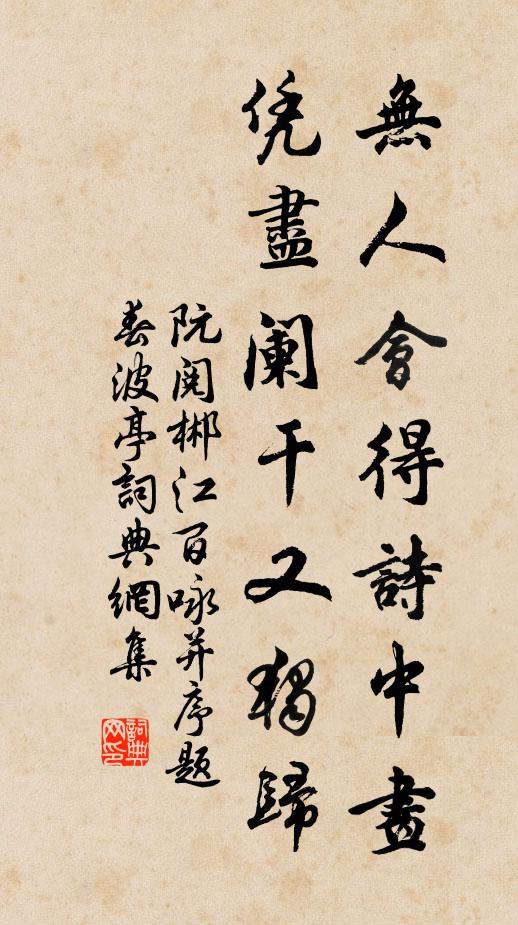 無人會得詩中畫
凭盡闌干又獨歸
阮閱郴江百咏并序題
春波亭詞典網集
詞典网印